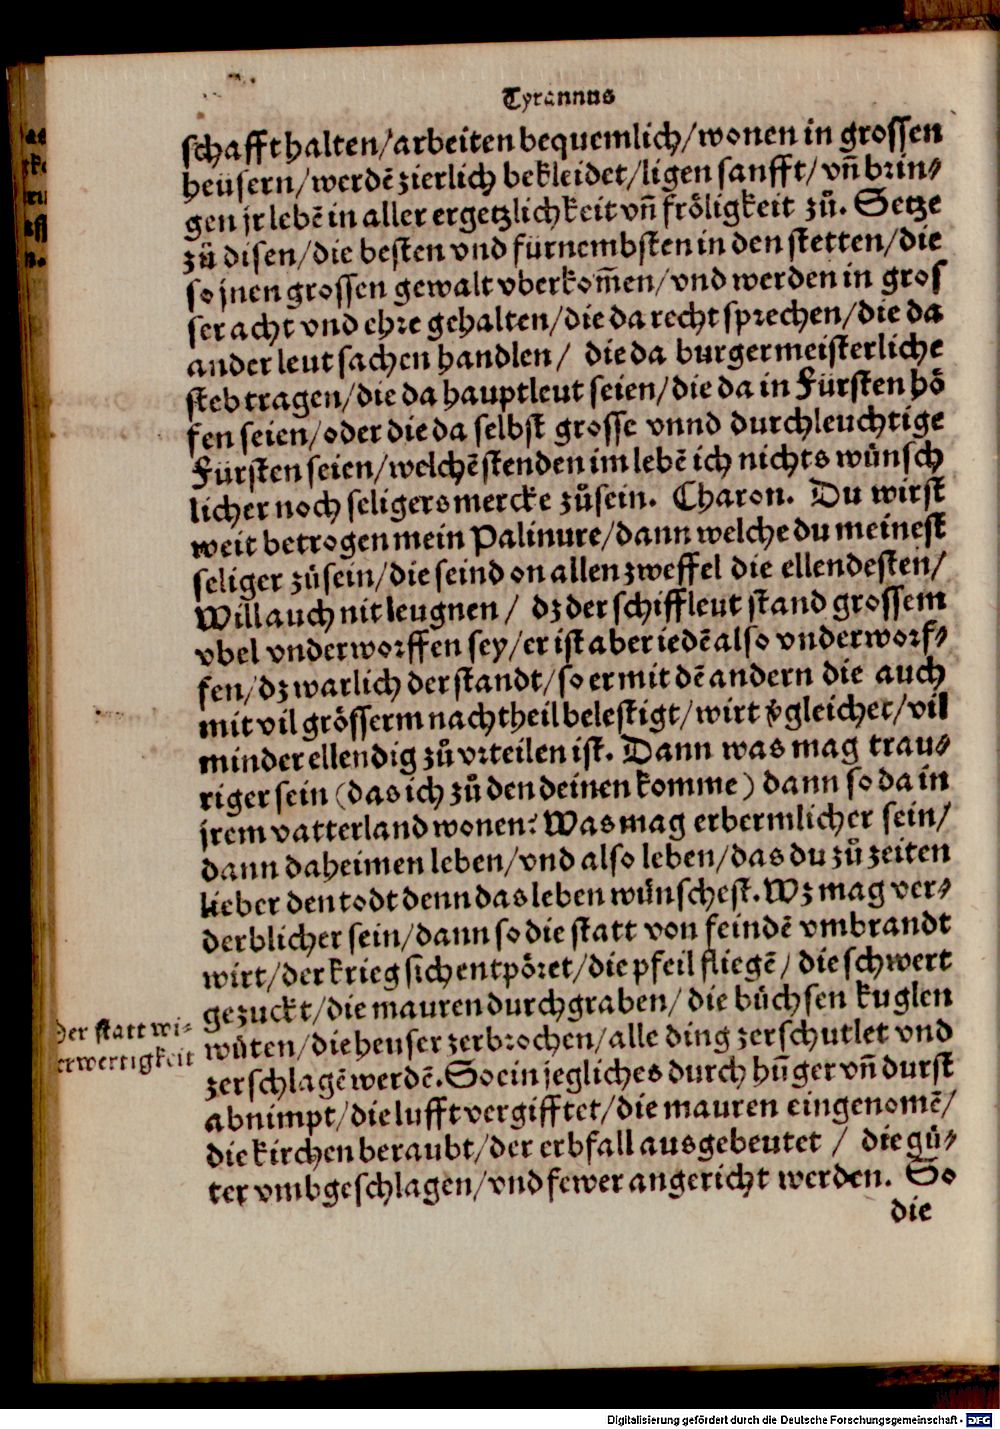 Tyrannus
schafft halten/arbeiten bequemlich/wonen in grossen
heüsern/werdē zierlich bekleidet/ligen sanfft/vñ brin⸗
gen jr lebē in aller ergetzlichkeit vñ frőligkeit zů. Setze
zů disen/die besten vnd fürnembsten in den stetten/die
so jnen grossen gewalt vberkom̄en/vnd werden in gros
ser acht vnd ehre gehalten/die da recht sprechen/die da
ander leut sachen handlen/ die da burgermeisterliche
steb tragen/die da hauptleut seien/die da in Fürsten hő
fen seien/oder die da selbst grosse vnnd durchleuchtige
Fürsten seien/welchē stenden im lebē ich nichts wünsch
licher noch seligers mercke zůsein. Charon. Du wirst
weit betrogen mein Palinure/dann welche du meinest
seliger zůsein/die seind on allen zweffel die ellendesten/
Will auch nit leugnen/ dz der schiffleut stand grossem
vbel vnderworffen sey/er ist aber iedē also vnderworf⸗
fen/dz warlich der standt/so er mit dē andern die auch
mit vil grősserm nachtheil belestigt/wirt ꝟgleichet/vil
minder ellendig zů vrteilen ist. Dann was mag trau⸗
riger sein (das ich zů den deinen komme) dann so da in
jrem vatterland wonen? Was mag erbermlicher sein/
dann daheimen leben/vnd also leben/das du zů zeiten
lieber den todt denn das leben wünschest. Wz mag ver⸗
derblicher sein/dann so die statt von feindē vmbrandt
wirt/der krieg sich entpőret/die pfeil fliegē/ die schwert
gezuckt/die mauren durchgraben/ die büchsen kuglen
der statt wi⸗
erwertigkeit
wůten/die heuser zerbrochen/alle ding zerschutlet vnd
zerschlagē werdē. So ein jegliches durch hūger vñ durst
abnimpt/die lufft vergifftet/die mauren eingenomē/
die kirchen beraubt/der erbfall ausgebeutet / die gů⸗
ter vmbgeschlagen/vnd fewer angericht werden. So
die
Digitalisierung gefördert durch die Deutsche Forschungsgemeinschaft - DFG